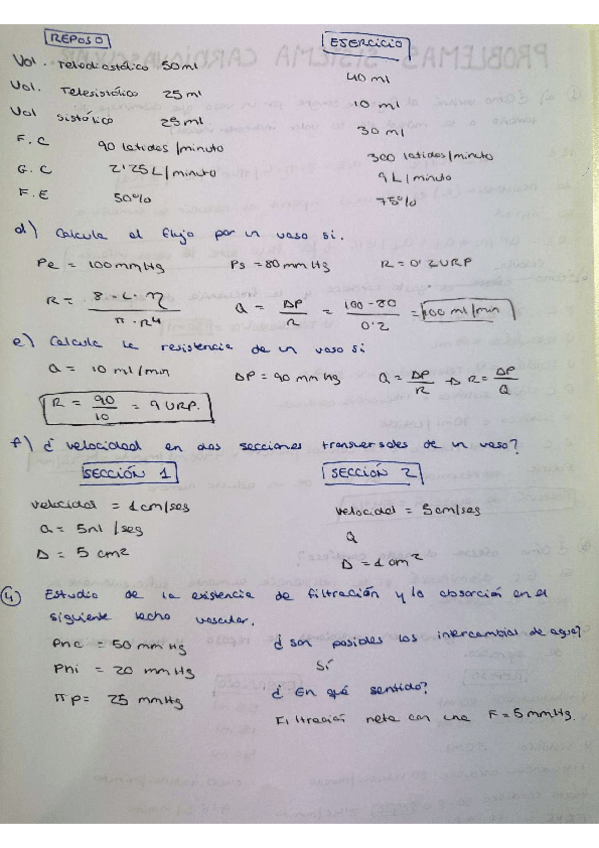 REPOSO EJERCICIO
Vol. Telediastólico 50ml 40 ml
Vol. Telesistólico 25ml 10 ml
Vol sistólico 25ml 30 ml
F.C 90 latidos/minuto 300 latidos/minuto
G.C 2'25L/minuto 9L/minuto
F.E 50% 75%
d) Calcula el flujo por un vaso si.
Pe = 100mmHg Ps = 80mmHg R = 0'2URP
R = 8·L·η / π·R4 Q = ΔP/R = 100-80/0'2 = 100 ml/min
e) Calcula la resistencia de un vaso si
Q = 10 ml/min ΔP = 90 mmHg Q = ΔP/R → R = ΔP/Q
R = 90/10 = 9 URP.
f) ¿velocidad en dos secciones transversales de un vaso?
SECCIÓN 1 SECCIÓN 2
velocidad = 1cm/seg velocidad = 5cm/seg
Q = 5ml/seg Q
D = 5 cm2 D = 1 cm2
4) Estudio de la existencia de filtración y la absorción en el
siguiente lecho vascular.
Phc = 50 mmHg ¿son posibles los intercambios de agua?
Phi = 20 mmHg Sí
πp = 25 mmHg ¿En qué sentido?
Filtración neta con una F = 5mmHg.